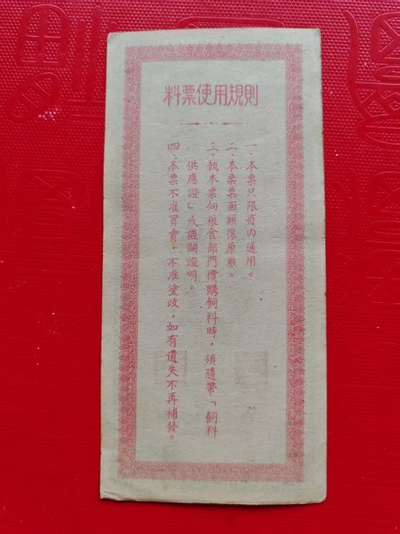 料票使用規則
一、本票只限省内通用。
二、本票票面額係原粮。
三、执本票向粮食部門價購飼料時，須隨帶「飼料
供應證」或機關證明。
四、本票不准買賣，不准塗改，如有遺失不再補發。